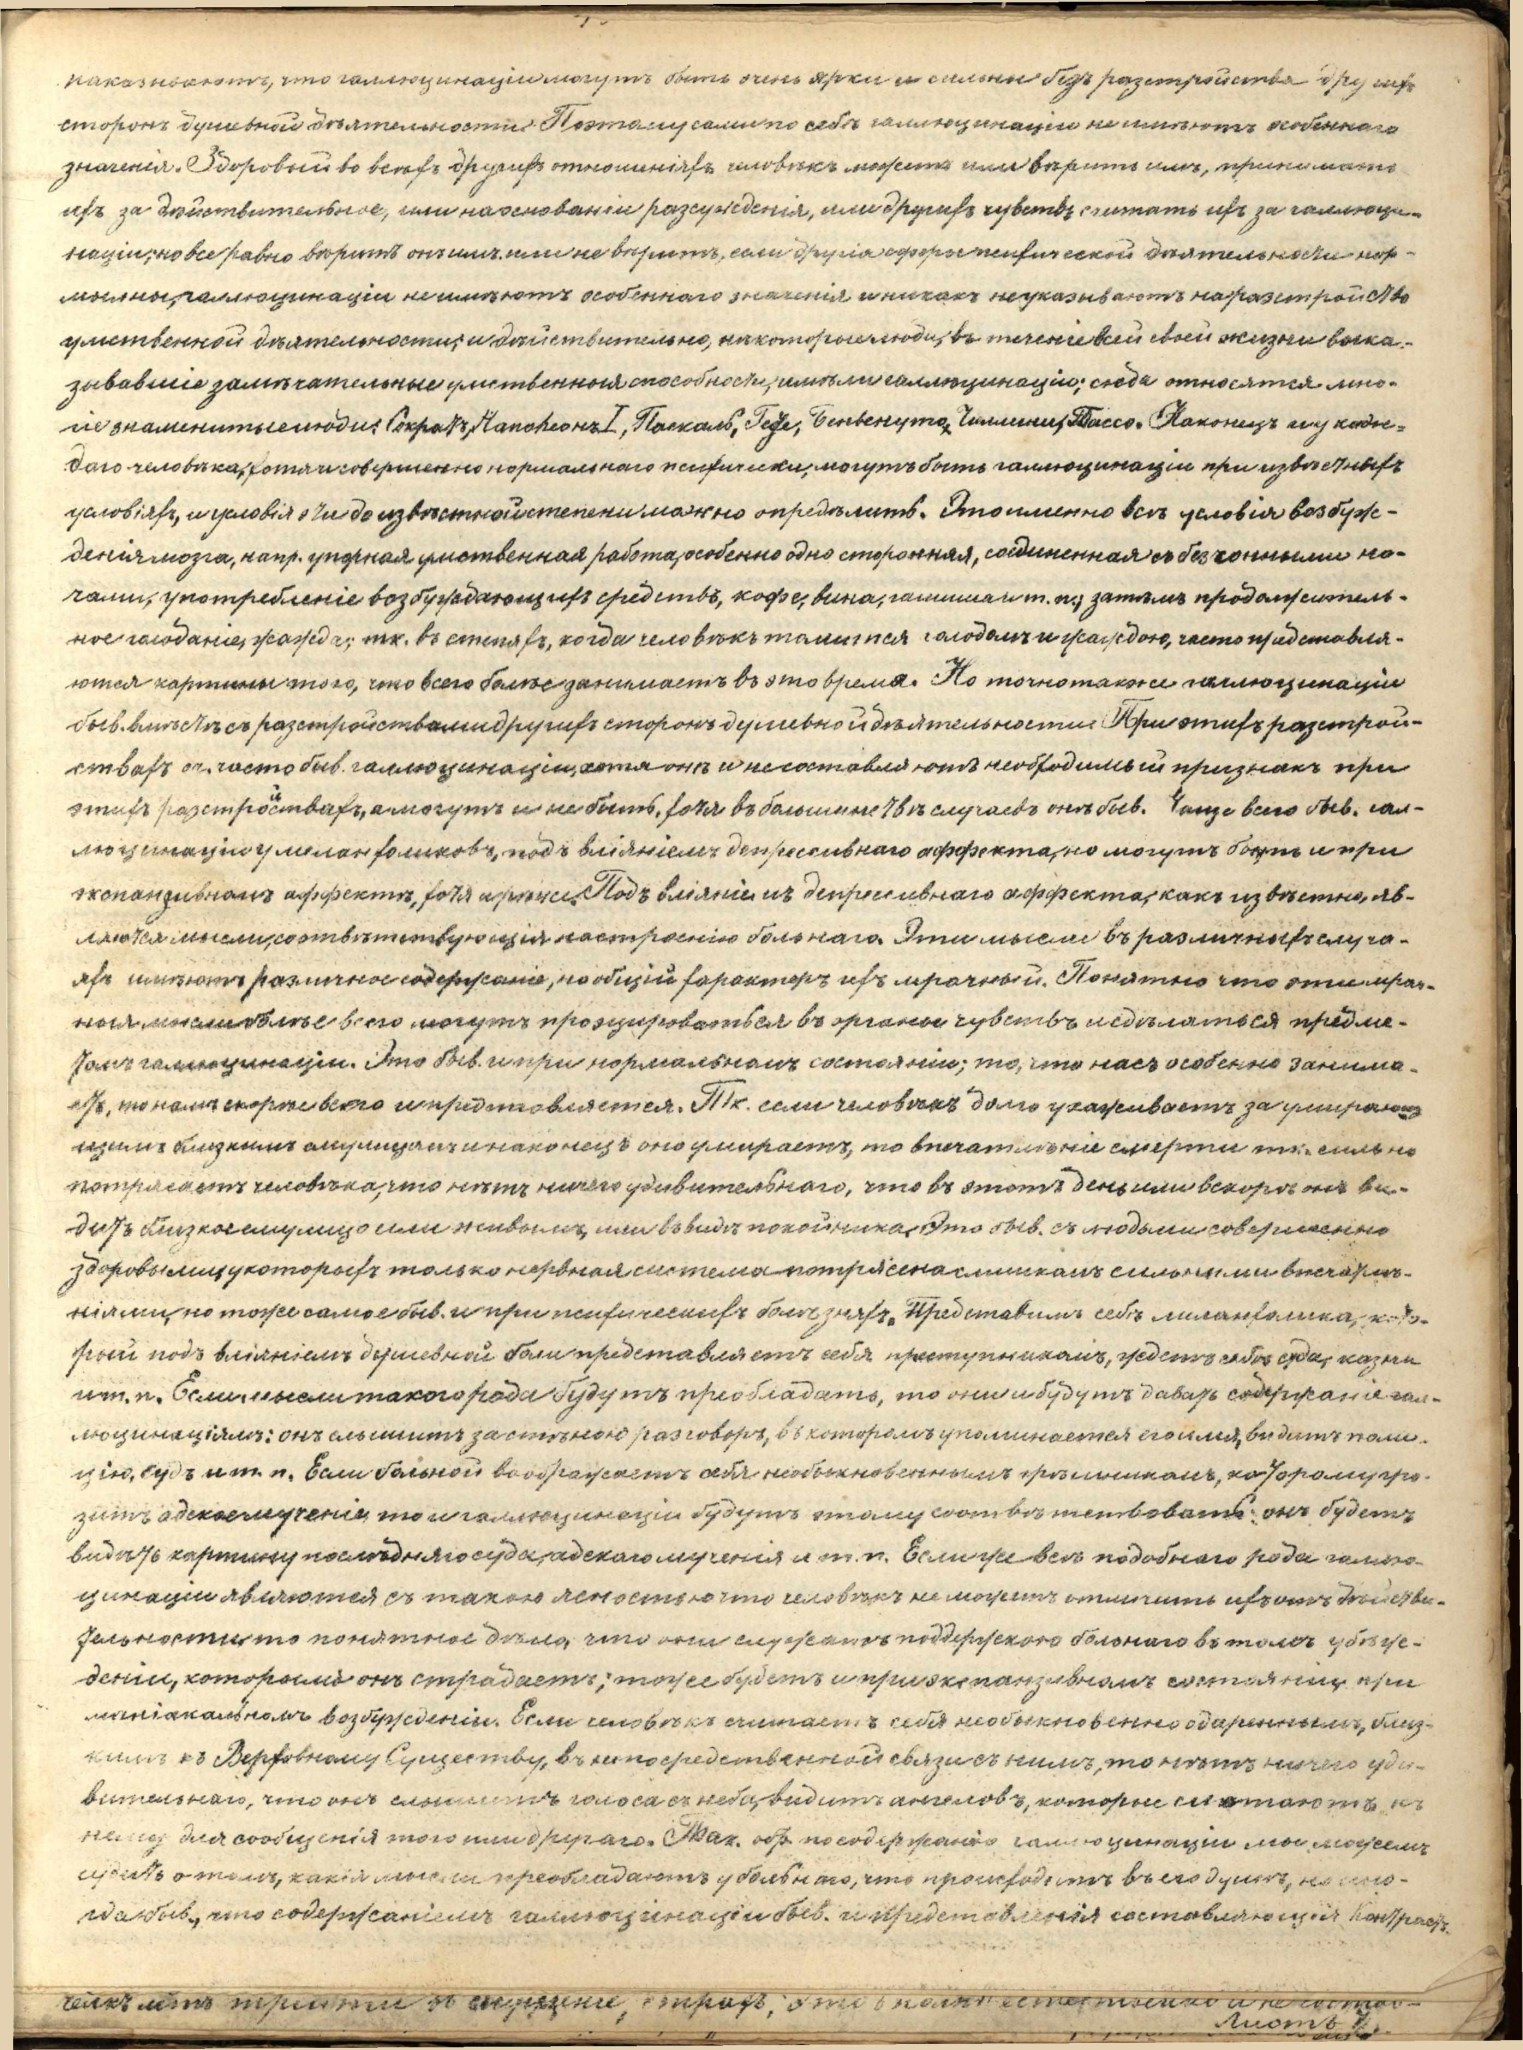 показываютъ, что галлюцинаціи могутъ быть очень ярки и сильны безъ разстройства другихъ
сторонъ душевной дѣятельности. Поэтому сами по себѣ галлюцинаціи не имѣютъ особеннаго
значенія. Здоровый во всѣхъ другихъ отношеніяхъ человѣкъ можетъ или вѣрить имъ, принимать
ихъ за дѣйствительное, или на основаніи разсужденія, или другихъ чувствъ считать ихъ за галлюци-
націи; но все равно вѣритъ онъ имъ или не вѣритъ, если другія сферы психической дѣятельности нор-
мальны, галлюцинаціи не имѣютъ особеннаго значенія и никакъ не указываютъ на разстройство
умственной дѣятельности; и дѣйствительно, нѣкоторые люди, въ теченіе всей своей жизни выка-
зывавшіе замѣчательные умственныя способности, имѣли галлюцинаціи; сюда относятся мно-
гіе знаменитые люди: Сократъ, Наполеонъ I, Паскаль, Гете, Бенвенуто Челлини, Тассо. Наконецъ и у каж-
даго человѣка, хотя и совершенно нормальнаго психически, могутъ быть галлюцинаціи при извѣстныхъ
условіяхъ, и условія эти до извѣстной степени можно опредѣлить. Это именно всѣ условія возбуж-
денія мозга, напр. упорная умственная работа, особенно одно сторонняя, соединенная съ безсонными но-
чами, употребленіе возбуждающихъ средствъ, кофе, вина, гашиша и т. п.; затѣмъ продолжитель-
ное голоданіе, жажда; тк. въ степяхъ, когда человѣкъ томится голодомъ и жаждою, часто представля-
ются картины того, что всего болѣе занимаетъ въ это время. Но точно также галлюцинаціи
быв. вмѣстѣ съ разстройствами другихъ сторонъ душевной дѣятельности. При этихъ разстрой-
ствахъ оч. часто быв. галлюцинаціи, хотя онѣ и не составляютъ необходимый признакъ при
этихъ разстройствахъ, а могутъ и не быть, хотя въ большинствѣ случаевъ онѣ быв. Чаще всего быв. гал-
люцинаціи у меланхоликовъ, подъ вліяніемъ депрессивнаго аффекта, но могутъ быть и при
экспанзивномъ аффектѣ, хотя и рѣже. Подъ вліяніемъ депрессивнаго аффекта, какъ извѣстно, яв-
ляются мысли, соотвѣтствующія настроенію больнаго. Эти мысли въ различныхъ случа-
яхъ имѣютъ различное содержаніе, но общій характеръ ихъ мрачный. Понятно что эти мрач-
ныя мысли болѣе всего могутъ проэцироваться въ органы чувствъ и сдѣлаться предме-
томъ галлюцинаціи. Это быв. и при нормальномъ состояніи; то, что насъ особенно занима-
етъ, то намъ скорѣе всего и представляется. Тк. если человѣкъ долго ухаживаетъ за умираю-
щимъ близкимъ ему лицомъ и наконецъ оно умираетъ, то впечатлѣніе смерти тк. сильно
потрясаетъ человѣка, что нѣтъ ничего удивительнаго, что въ этотъ день или вскорѣ онъ ви-
дитъ близкое ему лицо или живымъ, или въ видѣ покойника. Это быв. съ людьми совершенно
здоровыми, у которыхъ только нервная система потрясена слишкомъ сильными впечатлѣ-
ніями, но тоже самое быв. и при психическихъ болѣзняхъ. Представимъ себѣ меланхолика, кото-
рый подъ вліяніемъ душевной боли представляетъ себя преступникомъ, ждетъ себѣ суда, казни
и т. п. Если мысли такого рода будутъ преобладать, то они и будутъ давать содержаніе гал-
люцинаціямъ: онъ слышитъ за стѣною разговоръ, въ которомъ упоминается его имя, видитъ поли-
цію, судъ и т. п. Если больной воображаетъ себя необыкновеннымъ грѣшникомъ, которому гро-
зитъ адское мученіе, то и галлюцинаціи будутъ этому соотвѣтствовать: онъ будетъ
видѣть картину послѣдняго суда, адскаго мученія и т. п. Если же всѣ подобнаго рода галлю-
цинаціи являются съ такою ясностью что человѣкъ не можетъ отличить ихъ отъ дѣйстви-
тельности, то понятное дѣло, что они служатъ поддержкою больнаго въ томъ убѣж-
деніи, которымъ онъ страдаетъ; тоже будетъ и при экспанзивномъ состояніи, при
маніакальномъ возбужденіи. Если человѣкъ считаетъ себя необыкновенно одареннымъ, близ-
кимъ къ Верховному Существу, въ непосредственной связи съ нимъ, то нѣтъ ничего уди-
вительнаго, что онъ слышитъ голоса съ неба, видитъ ангеловъ, которые слетаютъ къ
нему для сообщенія того или другаго. Так. обр. по содержанію галлюцинаціи мы можемъ
судить о томъ, какія мысли преобладаютъ у больнаго, что происходитъ въ его душѣ, но ино-
гда быв., что содержаніемъ галлюцинаціи быв. и представленія составляющія контрастъ.
Листъ